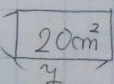 20cm²
y